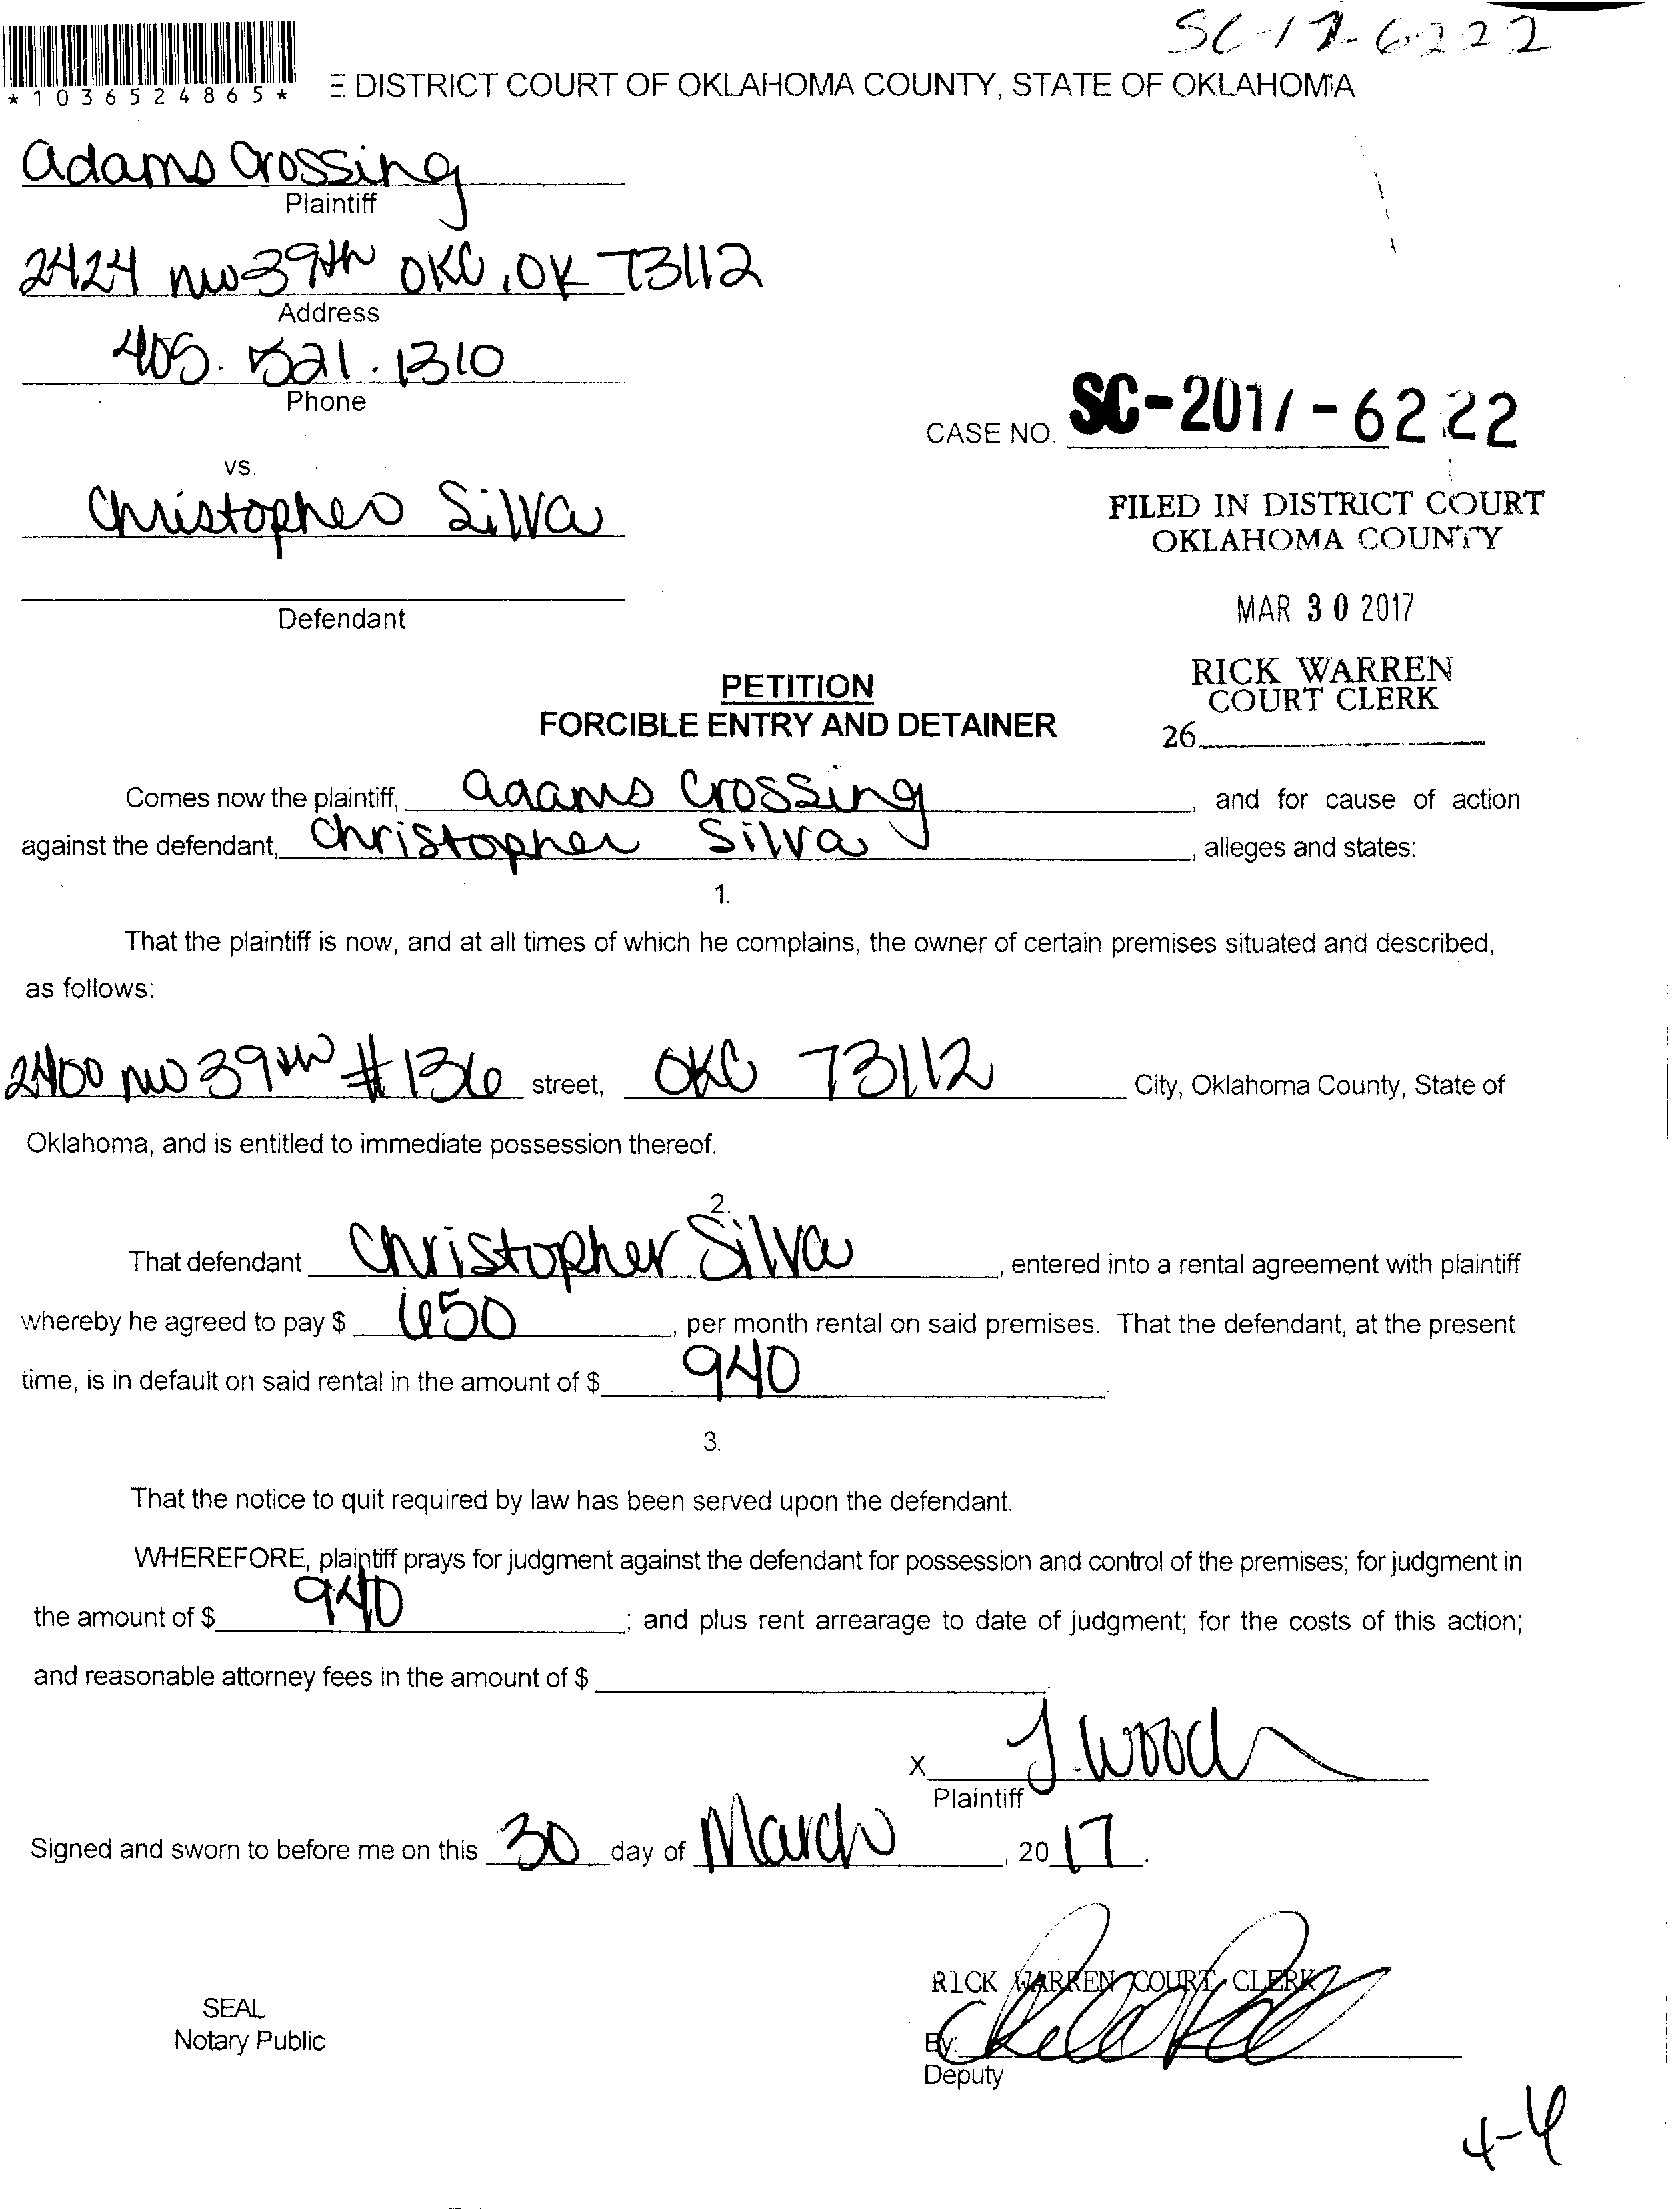 SC-17-6222
*1036524865*
E DISTRICT COURT OF OKLAHOMA COUNTY, STATE OF OKLAHOMA
Adams Crossing
Plaintiff
2424 NW 39th OKC, OK 73112
Address
405. 521. 1310
Phone
CASE NO. SC-2017-6222
vs.
Christopher Silva
FILED IN DISTRICT COURT
OKLAHOMA COUNTY
Defendant
MAR 30 2017
RICK WARREN
COURT CLERK
26
PETITION
FORCIBLE ENTRY AND DETAINER
Comes now the plaintiff, Adams Crossing, and for cause of action
against the defendant, Christopher Silva, alleges and states:
1.
That the plaintiff is now, and at all times of which he complains, the owner of certain premises situated and described,
as follows:
2400 NW 39th #136 street, OKC 73112 City, Oklahoma County, State of
Oklahoma, and is entitled to immediate possession thereof.
2.
That defendant Christopher Silva, entered into a rental agreement with plaintiff
whereby he agreed to pay $ 650, per month rental on said premises. That the defendant, at the present
time, is in default on said rental in the amount of $ 940
3.
That the notice to quit required by law has been served upon the defendant.
WHEREFORE, plaintiff prays for judgment against the defendant for possession and control of the premises; for judgment in
the amount of $ 940; and plus rent arrearage to date of judgment; for the costs of this action;
and reasonable attorney fees in the amount of $
X J. Wood
Plaintiff
Signed and sworn to before me on this 30 day of March, 2017.
RICK WARREN COURT CLERK
SEAL
Notary Public
By:
Deputy
4-4